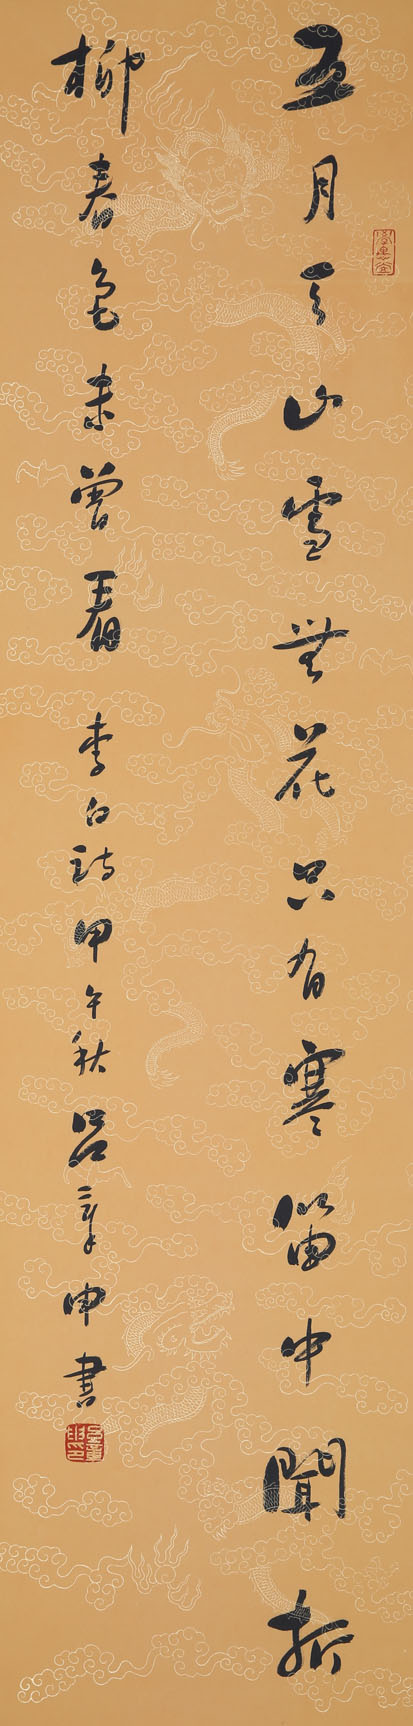 五月天山雪無花只有寒笛中聞折
柳春色未曾看
李白詩甲午秋呂章申書
呂章申印